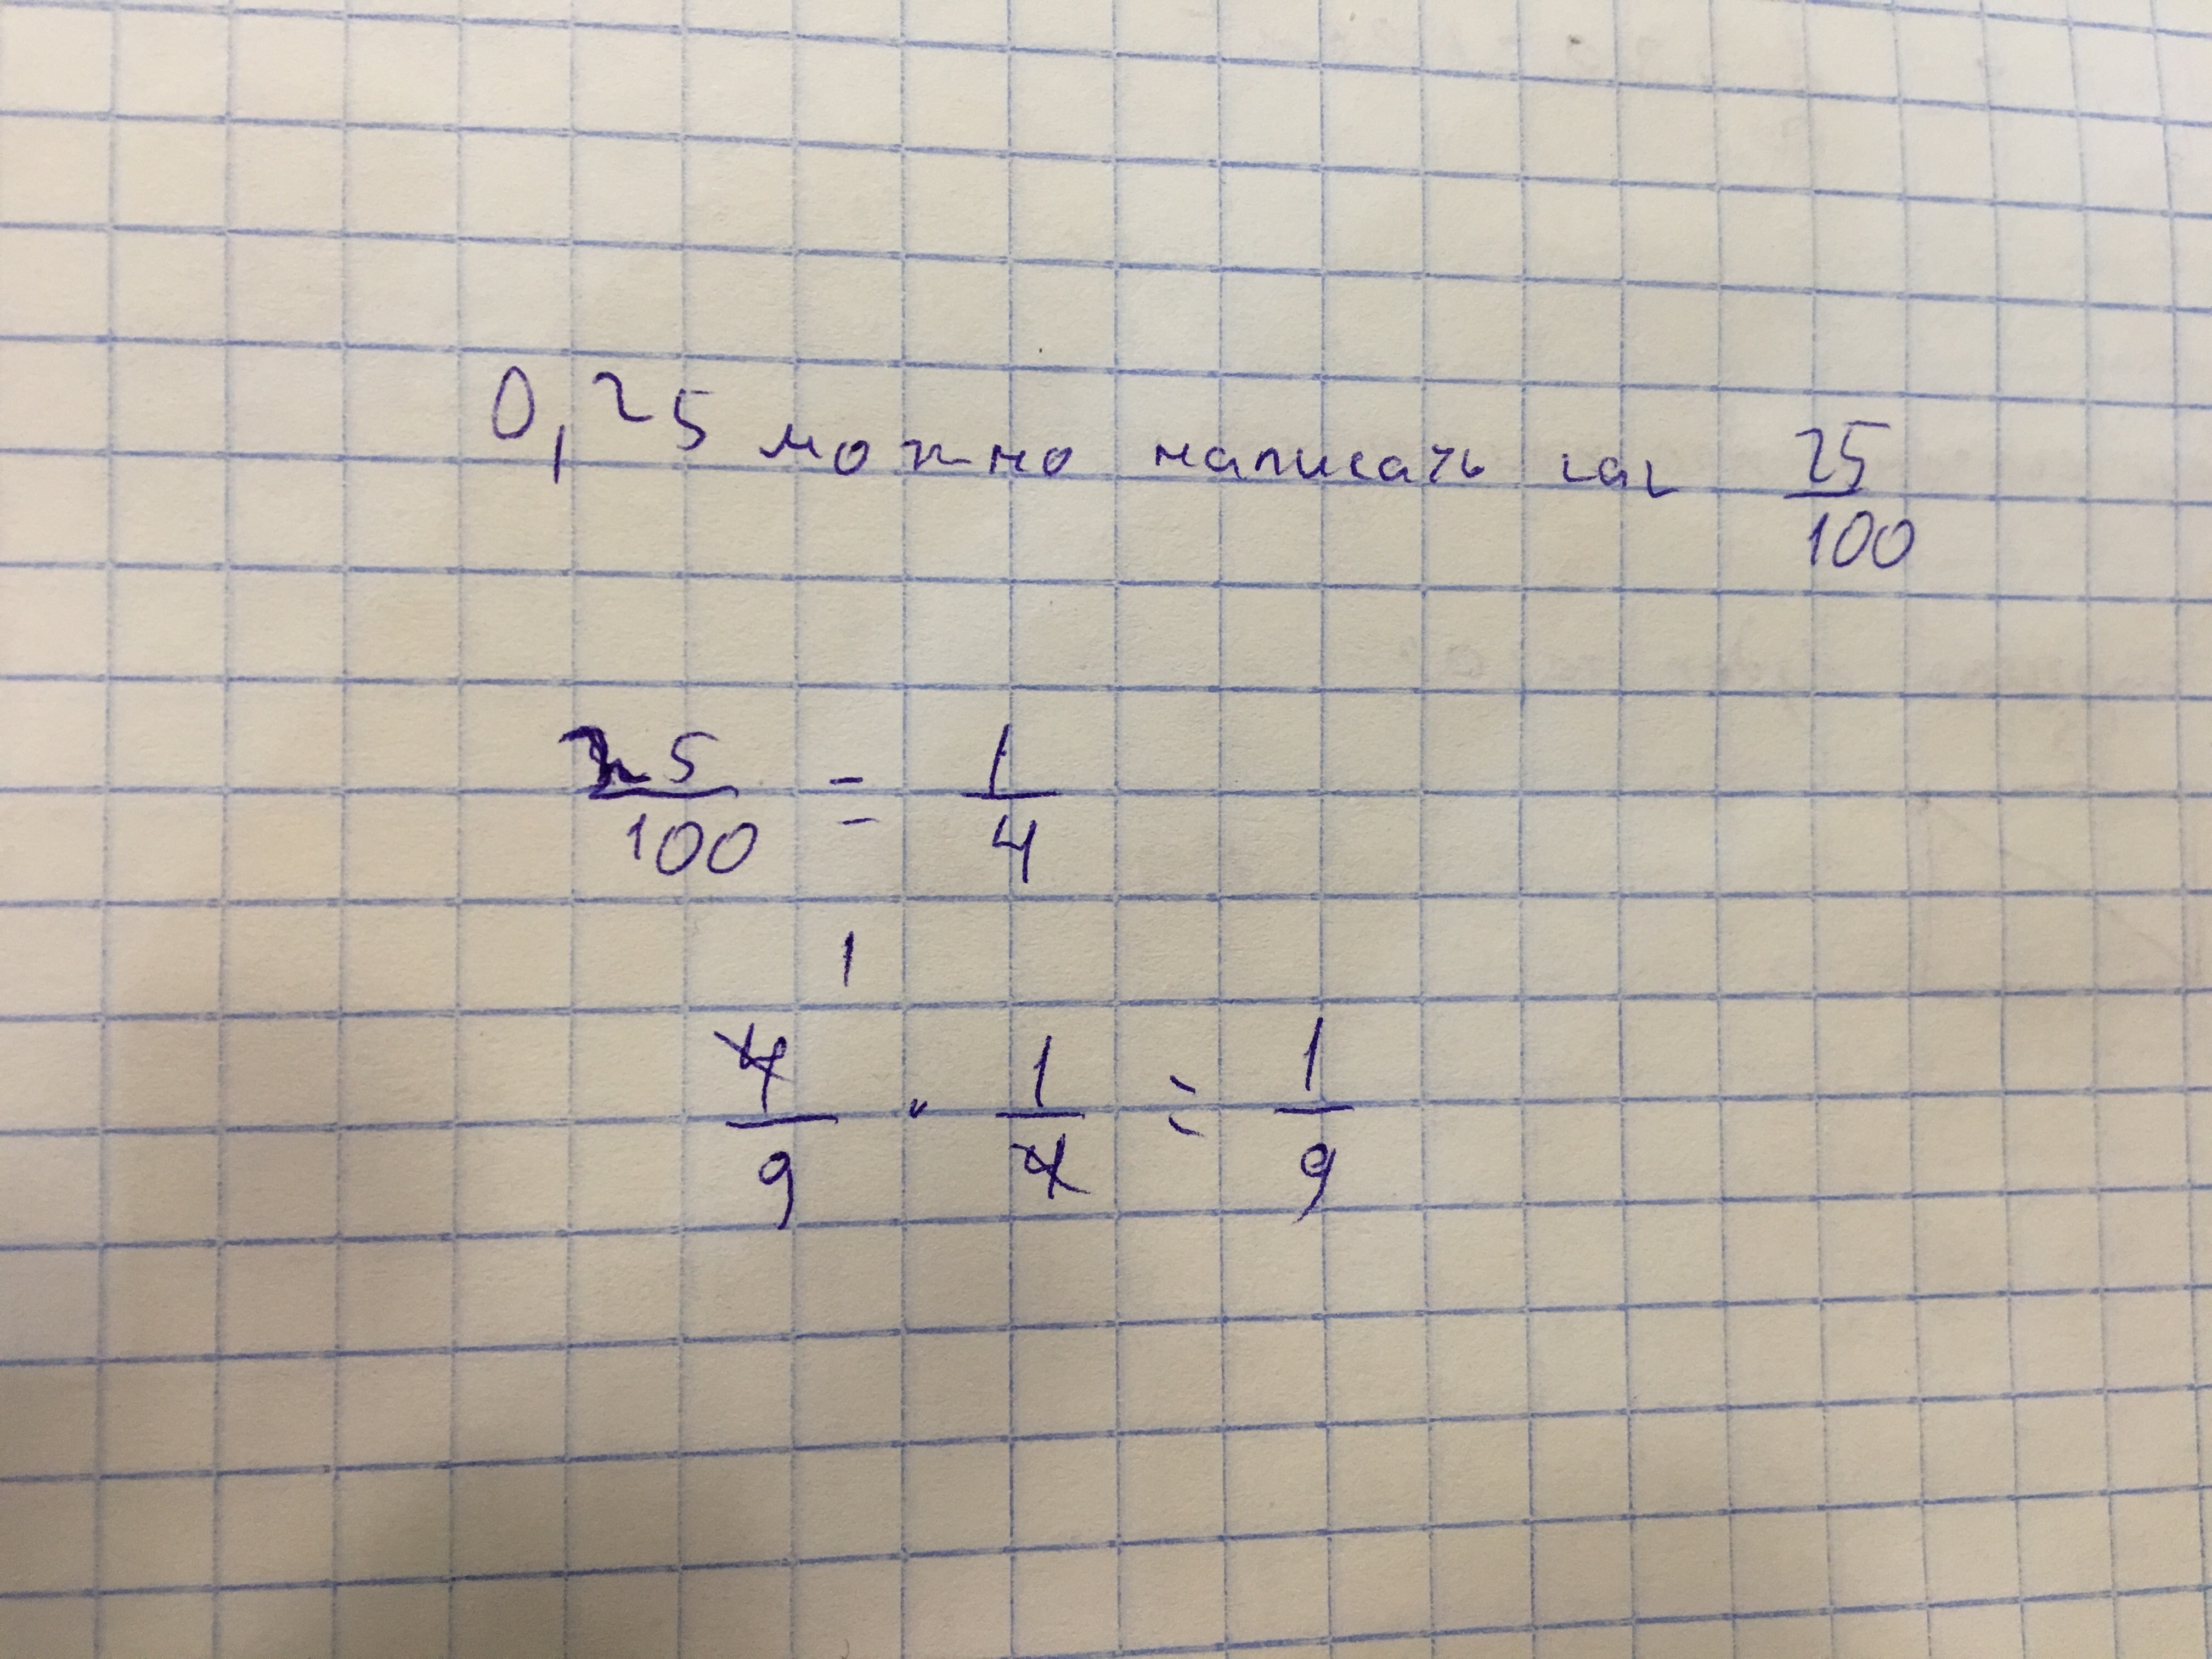 0,25 можно написать как 25/100
25/100 = 1/4
1
4/9 · 1/4 = 1/9